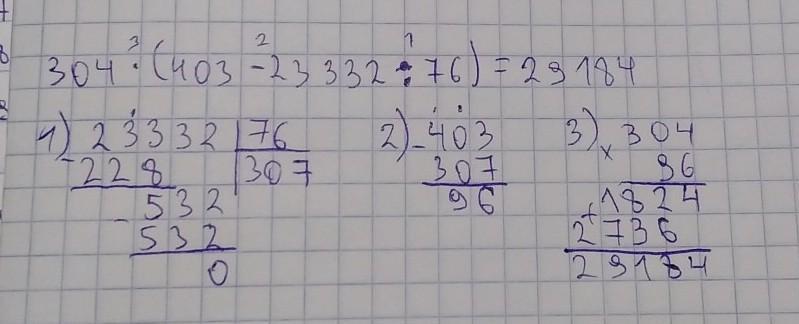 304 · (403 - 23332 : 76) = 29184
3 2 1
1) 23332 | 76
- 228 | 307
- 532
532
0
2) - 403
307
96
3) × 304
96
+ 1824
2736
29184